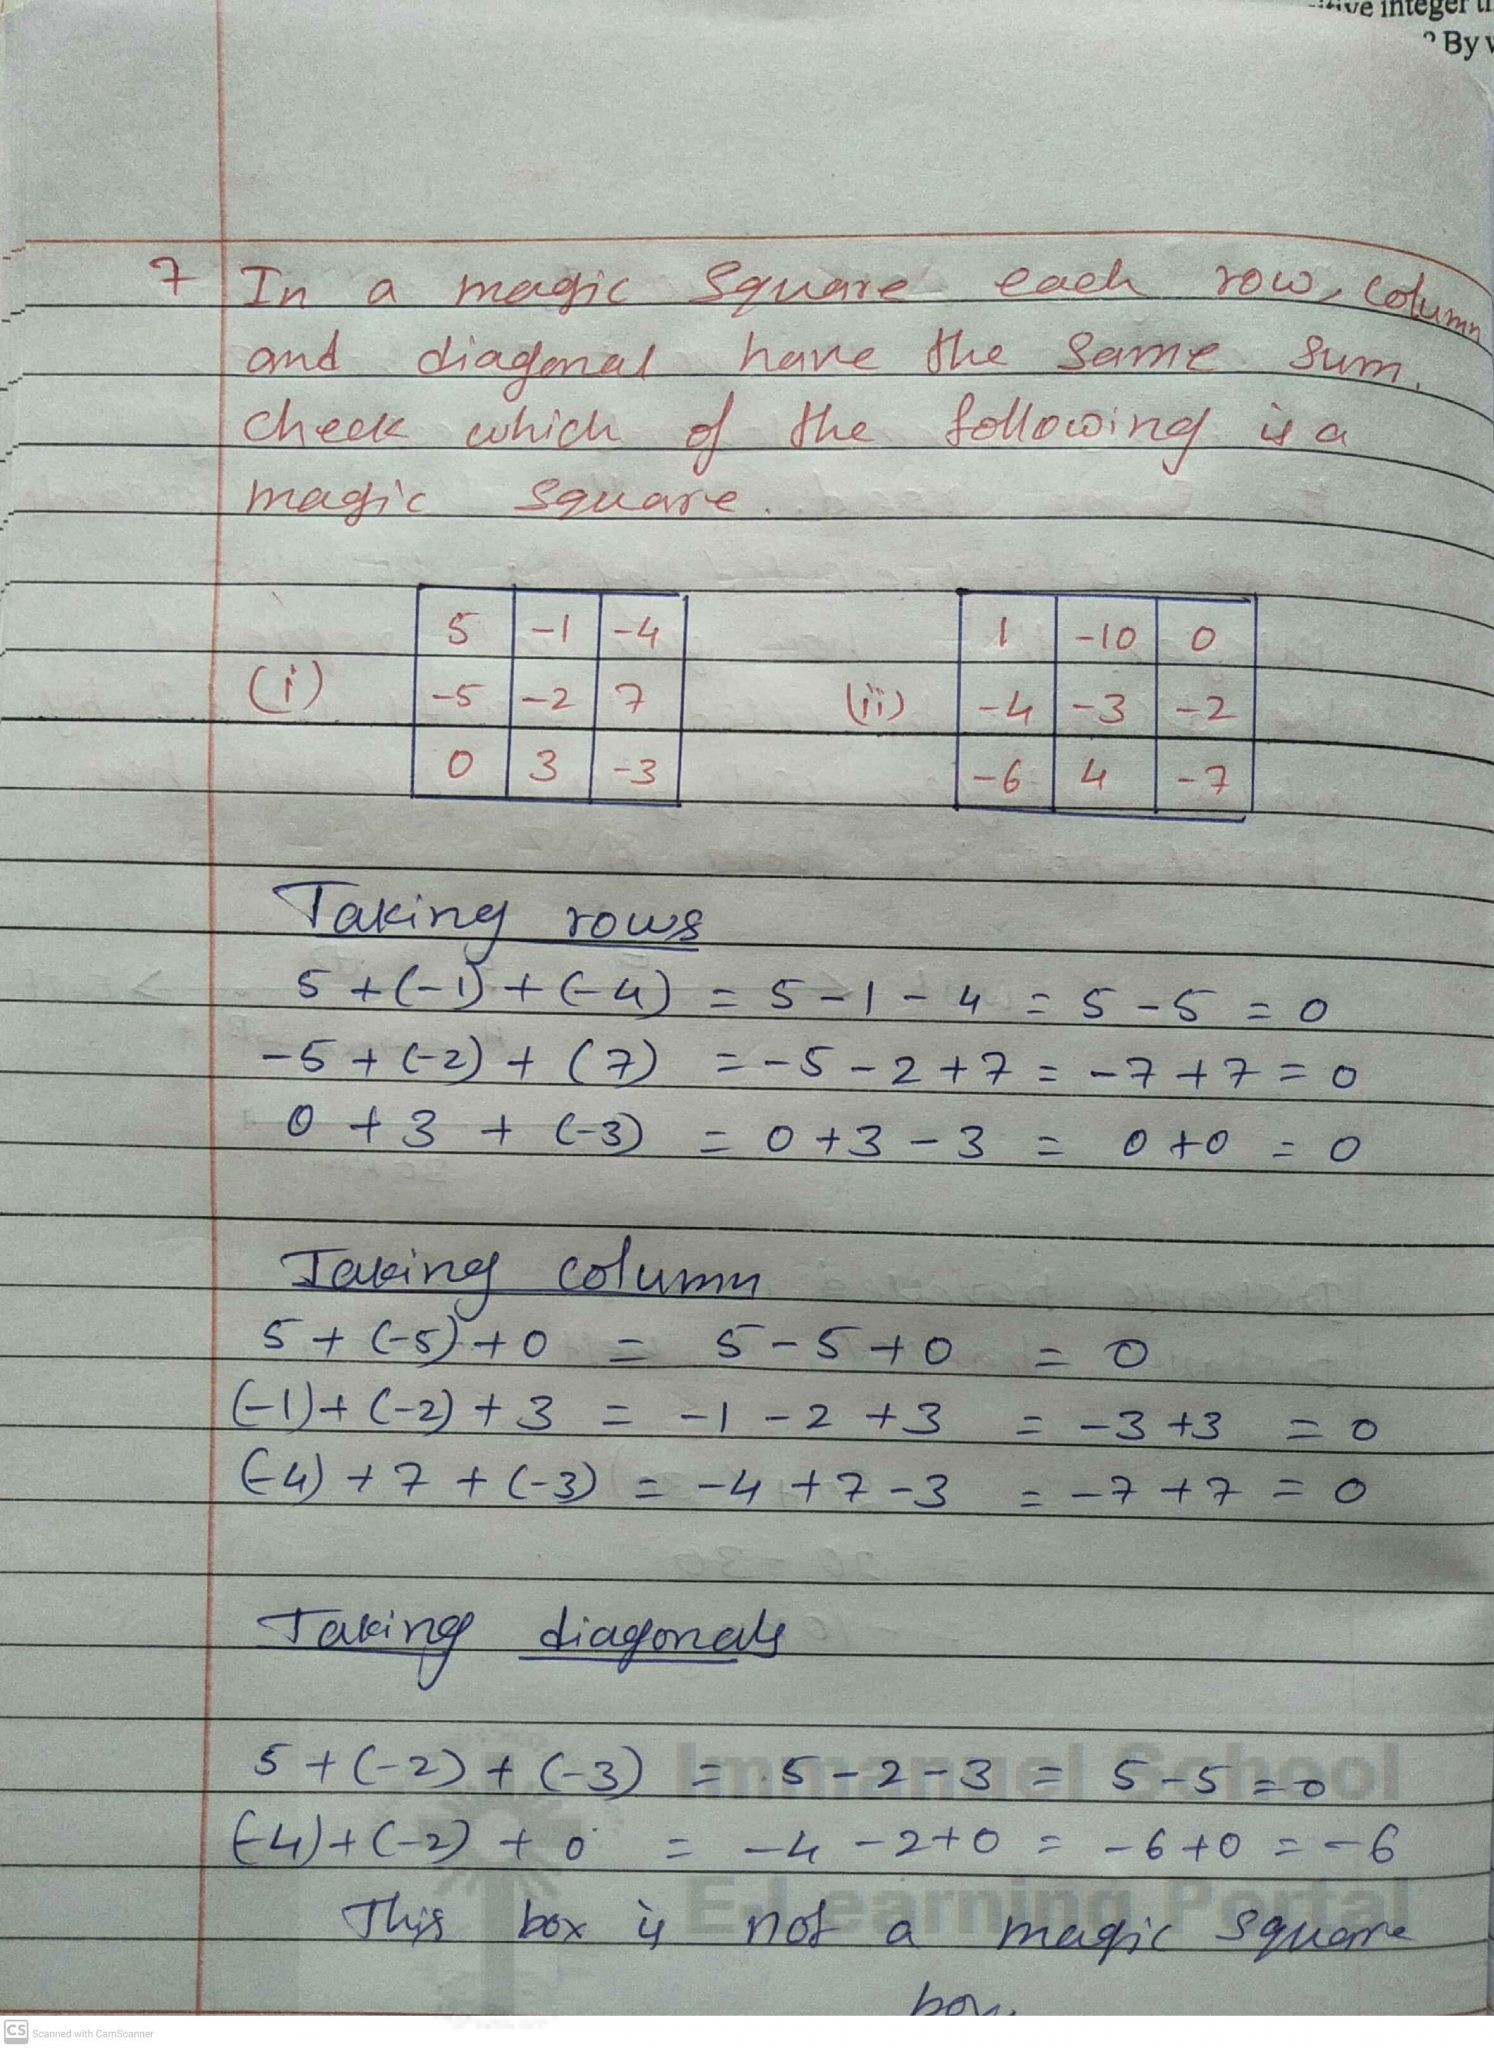 itive integer
? By
7 In a magic Square each row, column
and diagonal have the same sum.
check which of the following is a
magic square.
5 -1 -4
1 -10 0
(i) -5 -2 7
(ii) -4 -3 -2
0 3 -3
-6 4 -7
Taking rows
5 + (-1) + (-4) = 5 - 1 - 4 = 5 - 5 = 0
-5 + (-2) + (7) = -5 - 2 + 7 = -7 + 7 = 0
0 + 3 + (-3) = 0 + 3 - 3 = 0 + 0 = 0
Taking column
5 + (-5) + 0 = 5 - 5 + 0 = 0
(-1) + (-2) + 3 = -1 - 2 + 3 = -3 + 3 = 0
(-4) + 7 + (-3) = -4 + 7 - 3 = -7 + 7 = 0
Taking diagonals
5 + (-2) + (-3) = 5 - 2 - 3 = 5 - 5 = 0
(-4) + (-2) + 0 = -4 - 2 + 0 = -6 + 0 = -6
This box is not a magic square
box.
Immanuel School
E-Learning Portal
CS Scanned with CamScanner